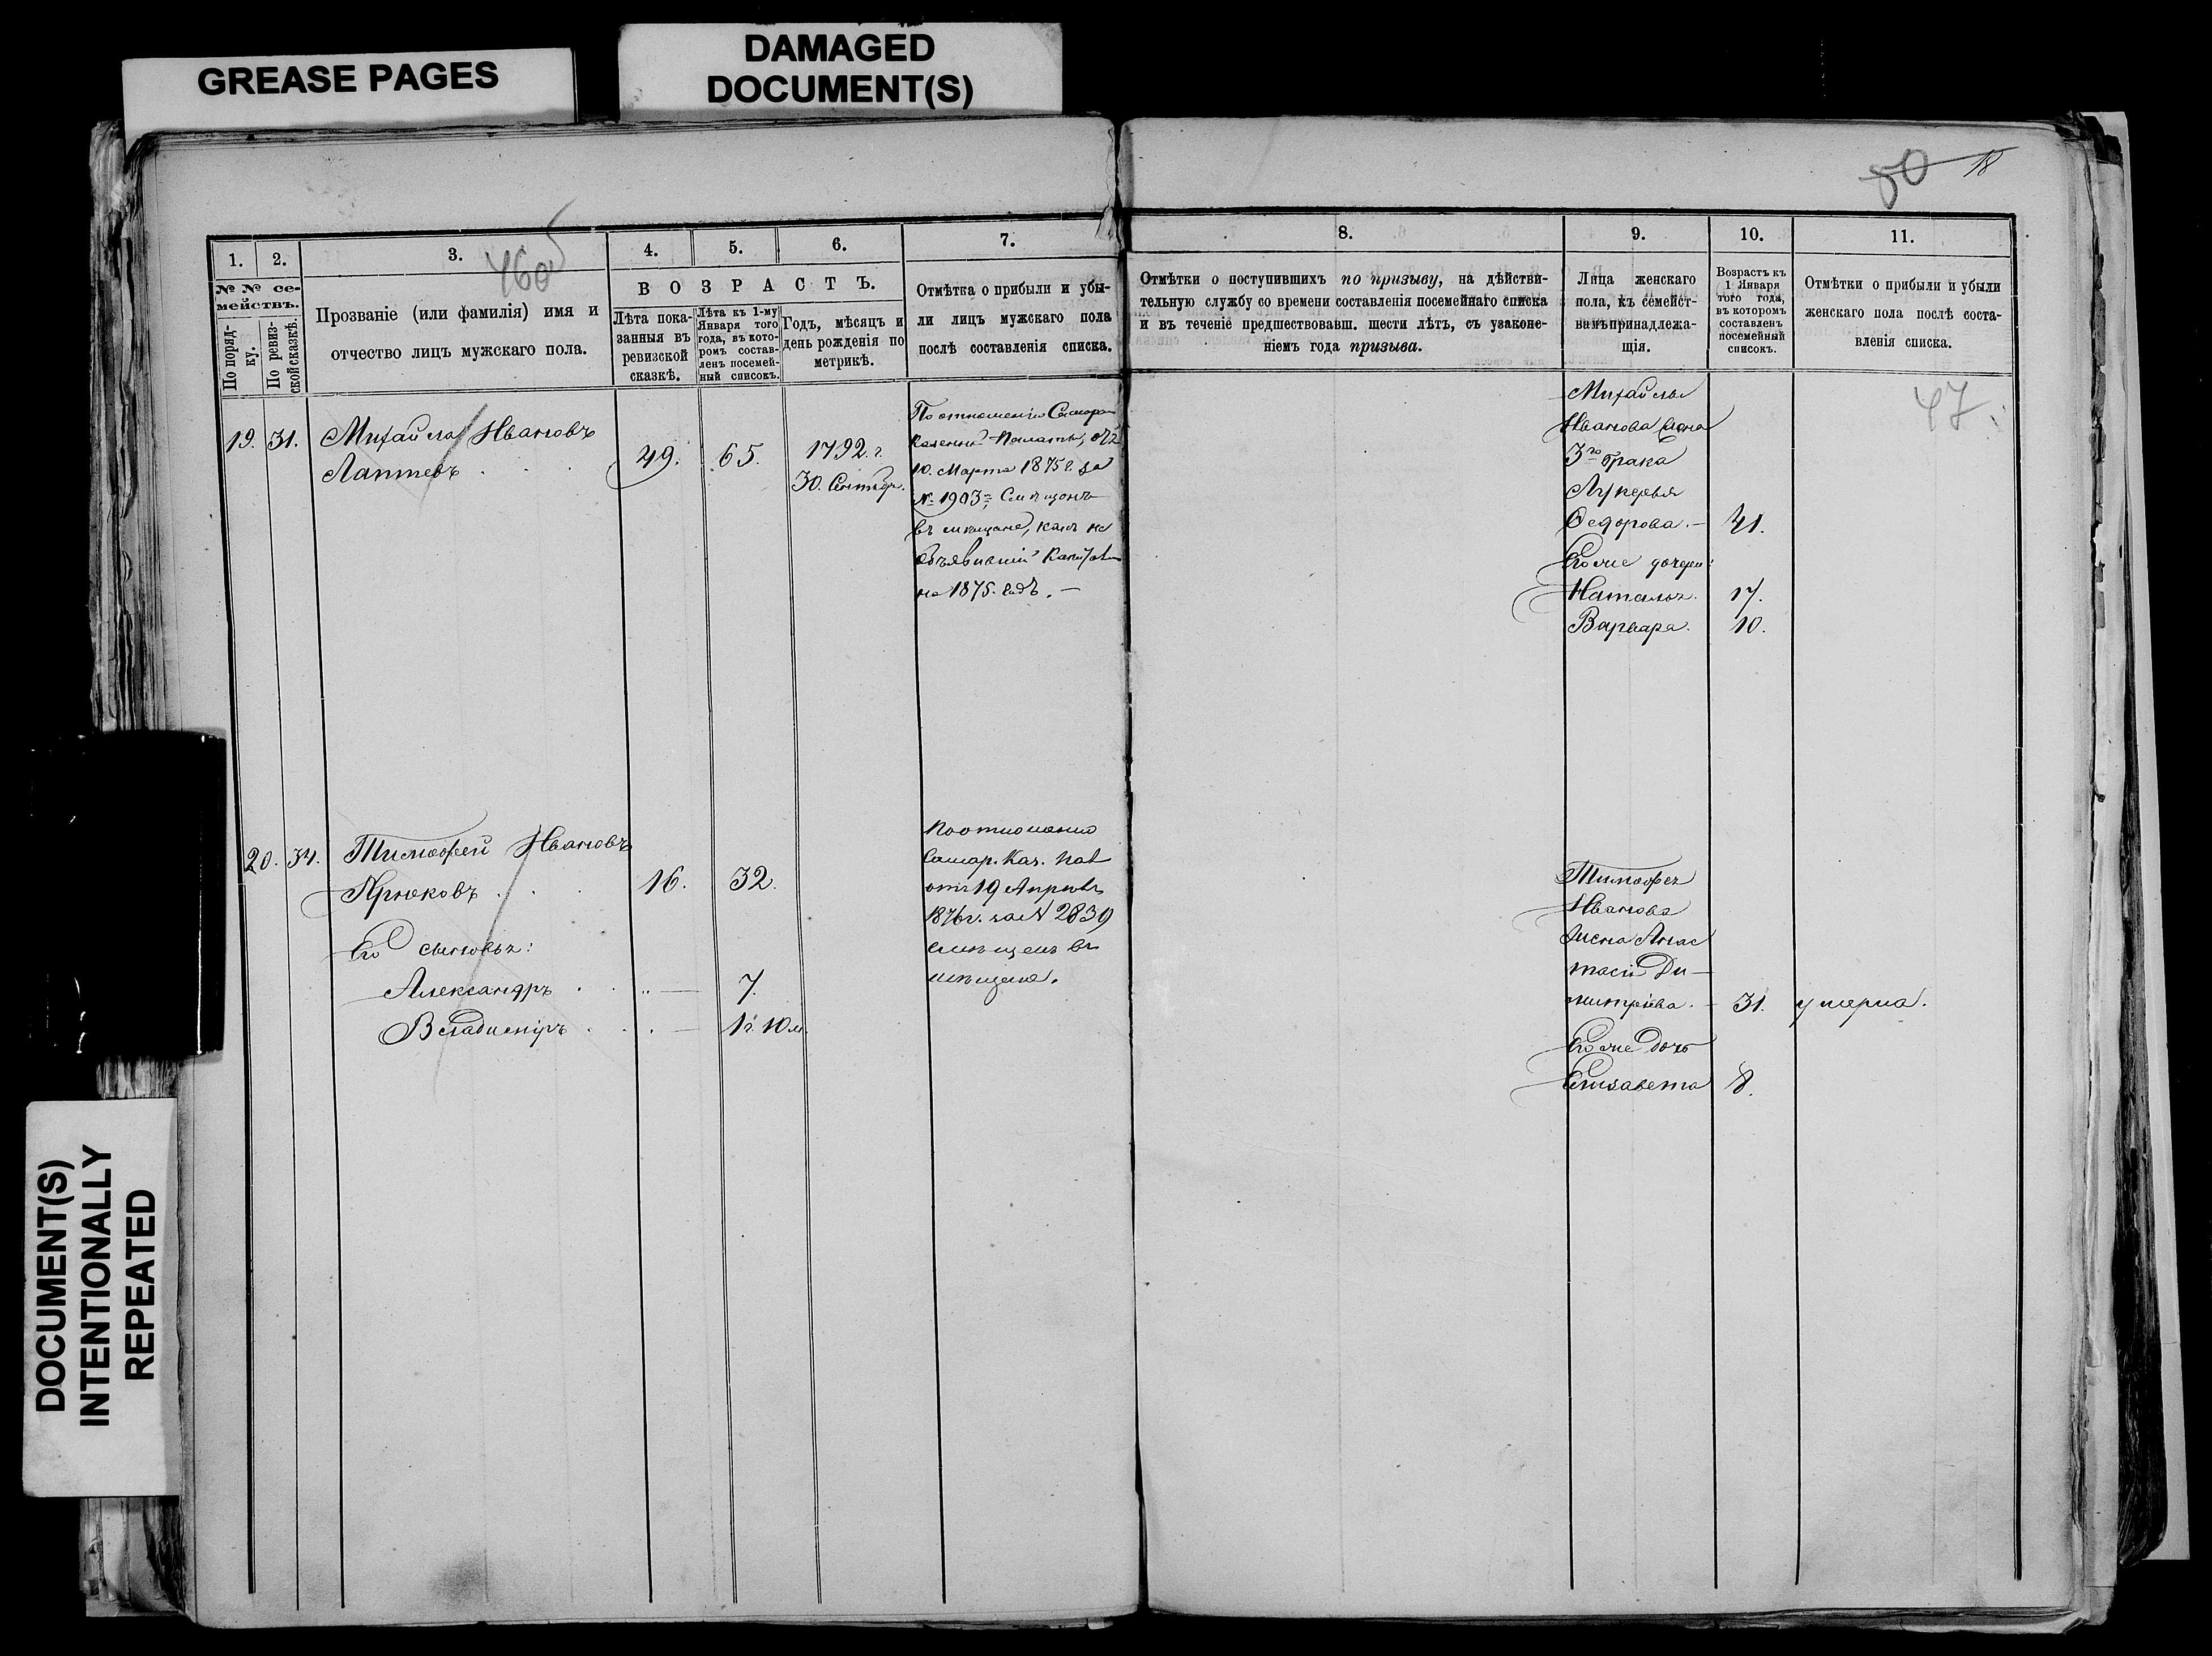 GREASE PAGES
DAMAGED
DOCUMENT(S)
DOCUMENT(S)
INTENTIONALLY
REPEATED
80 18
1. 2. 3. 4. 5. 6. 7. 8. 9. 10. 11.
№ № се-
мействъ.
По поряд-
ку.
По ревиз-
ской сказкѣ.
Прозваніе (или фамилія) имя и
отчество лицъ мужскаго пола.
В О З Р А С Т Ъ.
Лѣта пока-
занныя въ
ревизской
сказкѣ.
Лѣта къ 1-му
Января того
года, въ кото-
ромъ состав-
ленъ посемей-
ный списокъ.
Годъ, мѣсяцъ и
день рожденія по
метрикѣ.
Отмѣтка о прибыли и убы-
ли лицъ мужскаго пола
послѣ составленія списка.
Отмѣтки о поступившихъ по призыву, на дѣйстви-
тельную службу со времени составленія посемейнаго списка
и въ теченіе предшествовавш. шести лѣтъ, съ узаконе-
ніемъ года призыва.
Лица женскаго
пола, къ семейст-
вамъ принадлежа-
щія.
Возрастъ къ
1 Января
того года,
въ которомъ
составленъ
посемейный
списокъ.
Отмѣтки о прибыли и убыли
женскаго пола послѣ соста-
вленія списка.
47
19. 31. Михайла Ивановъ
Лаптевъ
49. 65. 1792. г.
30. Сентябр.
По отношенію Самарс
Казенной Палаты, отъ
10. Марта 1875 г. за
№ 1903, Смѣщонъ
въ мещане, какъ не
объявившій Капитал
на 1875. годъ. —
Михайлы
Иванова жена
3го брака
Лукерья
Федорова. — 41.
Его же дочери:
Наталья. 17.
Варвара. 10.
20. 34. Тимофей Ивановъ
Крюковъ
16. 32.
Его сыновья:
Александръ — 7.
Владиміръ — 1 г. 10 м.
По отношенію
Самар. Каз. Пал
отъ 19 Апрѣля
1876 г. за № 2839
смѣщенъ въ
мѣщане.
Тимофея
Иванова
жена Анас
тасія Ди—
митріева. — 31. умерла.
Его же дочь
Елизавета 8.